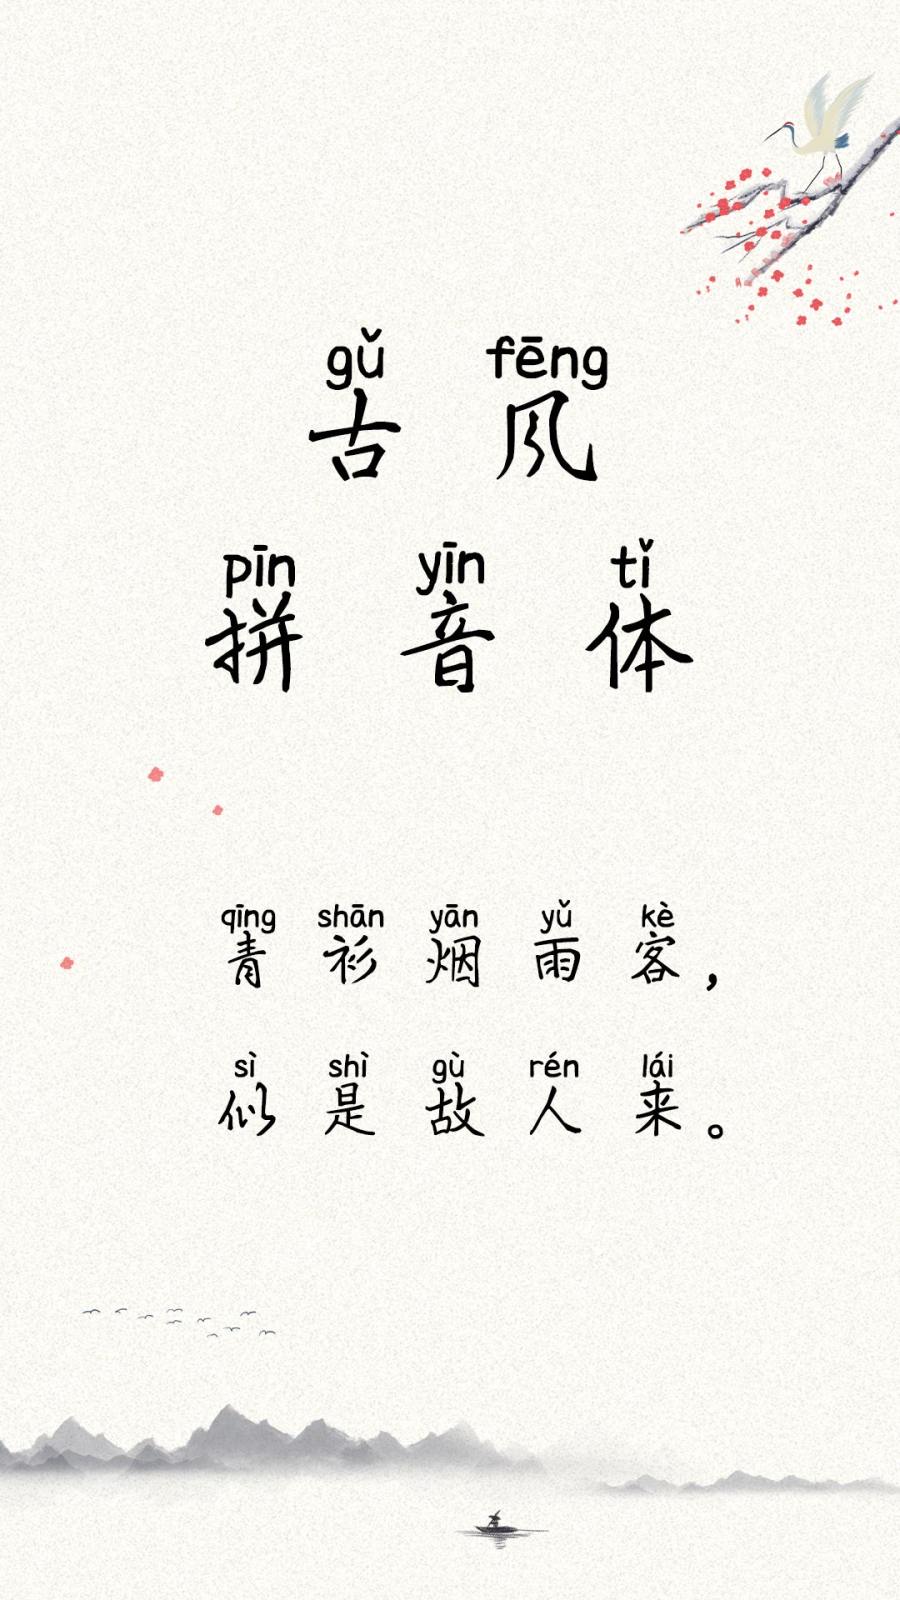 gǔ fēng
古风
pīn yīn tǐ
拼音体
qīng shān yān yǔ kè
青衫烟雨客，
sì shì gù rén lái
似是故人来。